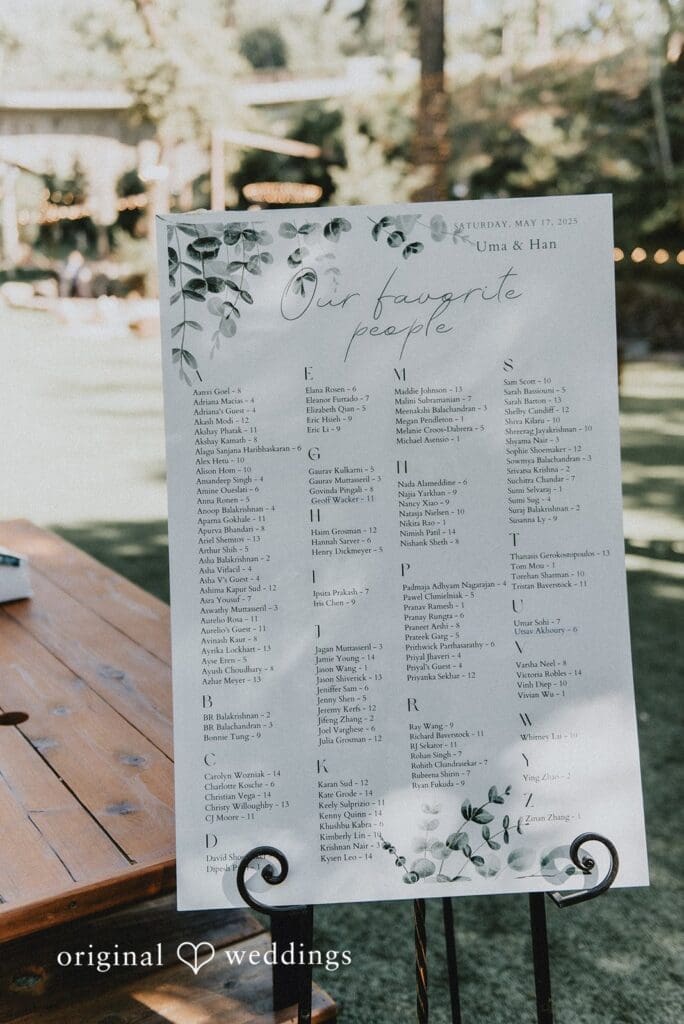 SATURDAY, MAY 17, 2025
Uma & Han
Our favorite
people
A
Aanvi Goel - 8
Adriana Macias - 4
Adriana's Guest - 4
Akash Modi - 12
Akshay Phatak - 11
Akshay Kamath - 8
Alagu Sanjana Haribhaskaran - 6
Alex Hetu - 10
Alison Hom - 10
Amandeep Singh - 4
Amine Oueslati - 6
Anna Ronen - 5
Anoop Balakrishnan - 4
Aparna Gokhale - 11
Apurva Bhandari - 8
Ariel Shemtov - 13
Arthur Shih - 5
Asha Balakrishnan - 2
Asha Vitlacil - 4
Asha V's Guest - 4
Ashima Kapur Sud - 12
Asra Yousuf - 7
Aswathy Muttasseril - 3
Aurelio Rosa - 11
Aurelio's Guest - 11
Avinash Kaur - 8
Ayrika Lockhart - 13
Ayse Eren - 5
Ayush Choudhary - 8
Azhar Meyer - 13
B
BR Balakrishnan - 2
BR Balachandran - 3
Bonnie Tung - 9
C
Carolyn Wozniak - 14
Charlotte Kosche - 6
Christian Vega - 14
Christy Willoughby - 13
CJ Moore - 11
D
David
Dipesh
E
Elana Rosen - 6
Eleanor Furtado - 7
Elizabeth Qian - 5
Eric Hsieh - 9
Eric Li - 9
G
Gaurav Kulkarni - 5
Gaurav Muttasseril - 3
Govinda Pingali - 8
Geoff Wacker - 11
H
Haim Grosman - 12
Hannah Sarver - 6
Henry Dickmeyer - 5
I
Ipsita Prakash - 7
Iris Chen - 9
J
Jagan Muttasseril - 3
Jamie Young - 14
Jason Wang - 1
Jason Shiverick - 13
Jeniffer Sam - 6
Jenny Shen - 5
Jeremy Kerfs - 12
Jifeng Zhang - 2
Joel Varghese - 6
Julia Grosman - 12
K
Karan Sud - 12
Kate Grode - 14
Keely Sulprizio - 11
Kenny Quinn - 14
Khushbu Kabra - 6
Kimberly Lin - 10
Krishnan Nair - 3
Kysen Leo - 14
M
Maddie Johnson - 13
Malini Subramanian - 7
Meenakshi Balachandran - 3
Megan Pendleton - 1
Melanie Croos-Dabrera - 5
Michael Asensio - 1
N
Nada Alameddine - 6
Najia Yarkhan - 9
Nancy Xiao - 9
Natasja Nielsen - 10
Nikita Rao - 1
Nimish Patil - 14
Nishank Sheth - 8
P
Padmaja Adhyam Nagarajan - 4
Pawel Chmielniak - 5
Pranav Ramesh - 1
Pranay Rungta - 6
Praneet Arshi - 8
Prateek Garg - 5
Prithwick Parthasarathy - 6
Priyal Jhaveri - 4
Priyal's Guest - 4
Priyanka Sekhar - 12
R
Ray Wang - 9
Richard Baverstock - 11
RJ Sekator - 11
Rohan Singh - 7
Rohith Chandrasekar - 7
Rubeena Shirin - 7
Ryan Fukuda - 9
S
Sam Scott - 10
Sarah Bassiouni - 5
Sarah Barton - 13
Shelby Cundiff - 12
Shiva Kilaru - 10
Sheerag Jayakrishnan - 10
Shyama Nair - 3
Sophie Shoemaker - 12
Sowmya Balachandran - 3
Srivatsa Krishna - 2
Suchitra Chandar - 7
Sumi Selvaraj - 1
Sumi Sug - 4
Suraj Balakrishnan - 2
Susanna Ly - 9
T
Thanasis Gerokostopoulos - 13
Tom Mou - 1
Torehan Sharman - 10
Tristan Baverstock - 11
U
Umar Sohi - 7
Utsav Akhoury - 6
V
Varsha Neel - 8
Victoria Robles - 14
Vinh Diep - 10
Vivian Wu - 1
W
Whitney Lu - 10
Y
Ying Zhao - 2
Z
Zinan Zhang - 1
original weddings